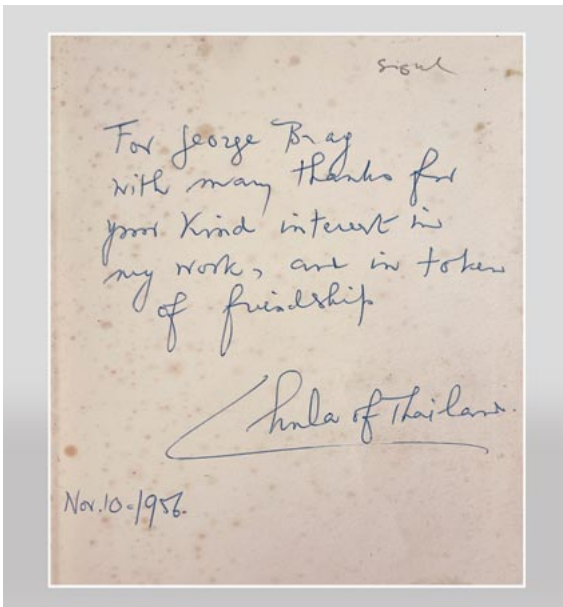 Signed
For George Bray
with many thanks for
your kind interest in
my work, and in token
of friendship
Chula of Thailand.
Nov. 10-1956.